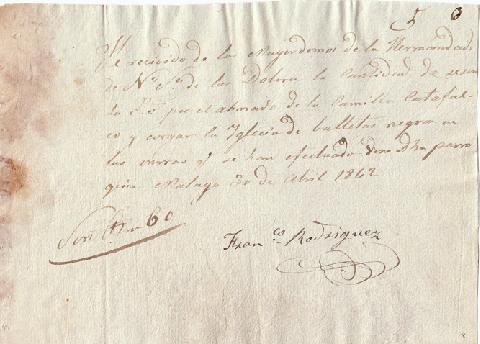 5
He recivido de la Mayordomos de la Hermandad
de Nª Sª de los Dolores la Cantidad de sesen
ta Rs por el alumado de la Camilla Catafal-
co y cerrar la Yglesia de balletas negra en
las misas qe se han efectuado en dha parro
quia Malaga 30 de Abril 1862
Son Rs 60
Franco Rodriguez